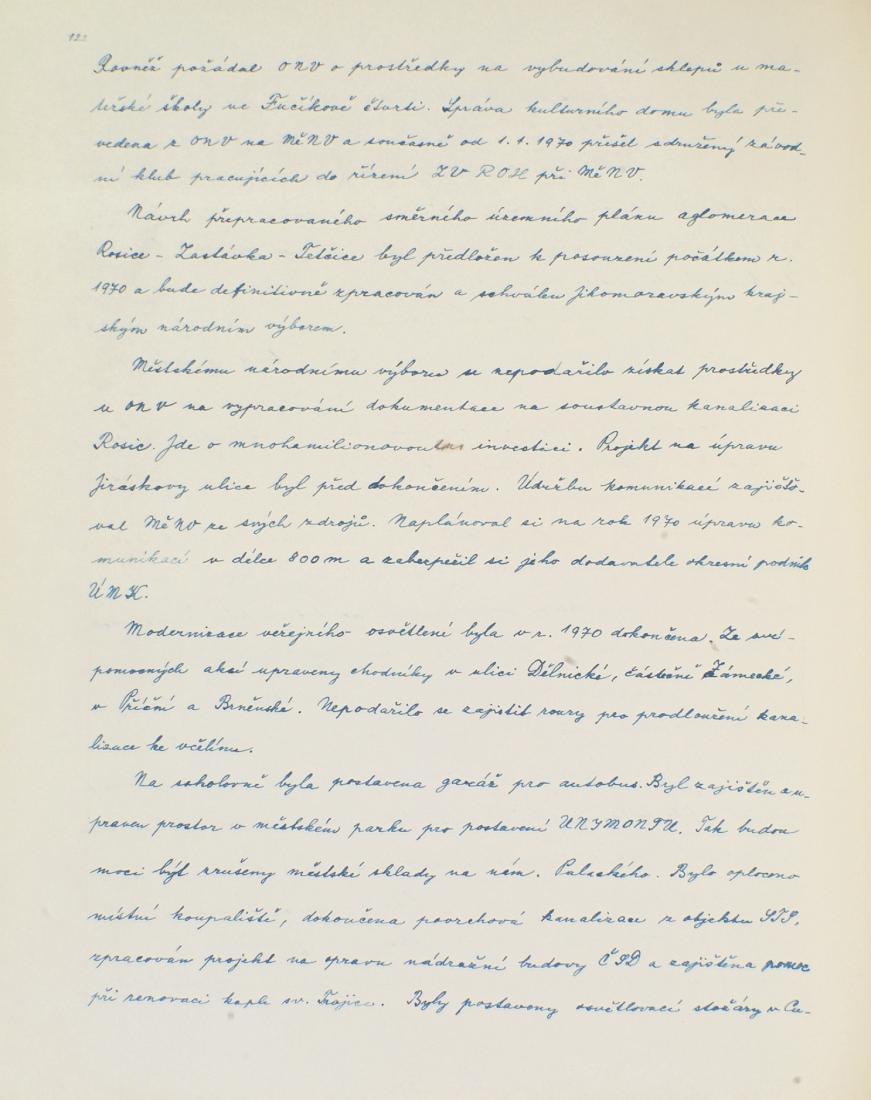 122
Rovněž požádal ONV o prostředky na vybudování sklepů u ma-
teřské školy ve Fučíkově čtvrti. Správa kulturního domu byla pře-
vedena z ONV na MěNV a současně od 1.1.1970 přešel sdružený závod-
ní klub pracujících do řízení ZV ROH při MěNV.
Návrh přepracovaného směrného územního plánu aglomerace
Rosice - Zastávka - Tetčice byl předložen k posouzení počátkem r.
1970 a bude definitivně zpracován a schválen Jihomoravským kraj-
ským národním výborem.
Městskému národnímu výboru se nepodařilo získat prostředky
u ONV na vypracování dokumentace na soustavnou kanalizaci
Rosic. Jde o mnohamilionovou investici. Projekt na úpravu
Jiráskovy ulice byl před dokončením. Údržbu komunikací zajišťo-
val MěNV ze svých zdrojů. Naplánoval si na rok 1970 úpravu ko-
munikací v délce 800 m a zabezpečil si jeho dodavatele okresní podnik
ÚNK.
Modernizace veřejního osvětlení byla v r. 1970 dokončena. Ze své-
pomocných akcí upraveny chodníky v ulici Dělnické, částečně Zámecké,
v Příční a Brněnské. Nepodařilo se zajistit roury pro prodloužení kana-
lizace ke včelínu.
Na sokolovně byla postavena garáž pro autobus. Byl zajištěn a u-
praven prostor v městském parku pro postavení UNYMONTU. Tak budou
moci být zrušeny městské sklady na nám. Palackého. Bylo oploceno
místní koupaliště, dokončena povrchová kanalizace z objektu STS,
zpracován projekt na opravu nádražní budovy ČSD a zajištěna pomoc
při renovaci kaple sv. Trojice. Byly postaveny osvětlovací stožáry v Cu-